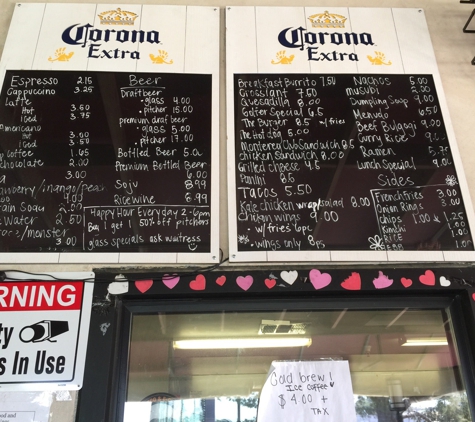 Corona
Extra
Espresso 2.15
Cappuccino 3.25
Latte
Hot 3.60
Iced 3.75
Americano
3.00
Iced 3.50
Coffee 1.65
chocolate 2.00
3.00
2.00
2.50
3.00
Beer
Draft beer
glass 4.00
pitcher 15.00
premium draf beer
glass 5.00
pitcher 17.00
Bottled Beer 5.0
Premium Bottled Beer
6.00
Soju 8.99
Rice wine 6.99
Happy Hour Everyday 2-6pm
Buy 1 get 1 50% off pitchers
glass specials ask waitress
Corona
Extra
Breakfast Burrito 7.50
Croissant 7.50
Quesadilla 8.00
Gater Special 6.5
The Burger 8.5 w/fries
The Hot dog 5.00
Monterey Club Sandwich 8.5
chicken Sandwich 8.00
Grilled cheese 4.5
Panini 8.5
Tacos 5.50
Kale chicken wrap/salad 8.00
chicken wings 9.00
w/fries 10pc
wings only 8pc
Nachos 5.00
musubi 2.00
Dumpling Soup 9.00
Menudo 6.50
Beef Bulgogi 9.00
Curry Rice
Ramen 5.75
Lunch Special
Sides
French fries 3.00
Onion Rings 3.00
chips 1.00 & 1.25
Kimchi 1.00
Rice 1.00
1.00
RNING
s In Use
Cold brew!
Ice coffee
$4.00 +
TAX